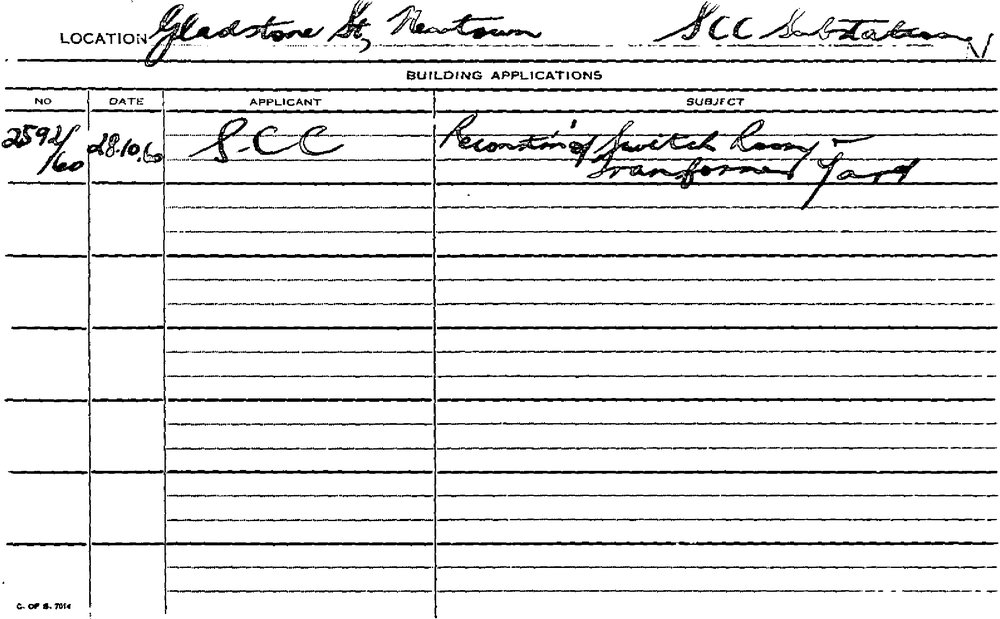 LOCATION Gladstone St, Newtown SCC Substation
BUILDING APPLICATIONS
NO DATE APPLICANT SUBJECT
2592/60 28.10.60 SCC Switch Room +
Transformer Yard
C. OF S. 7014